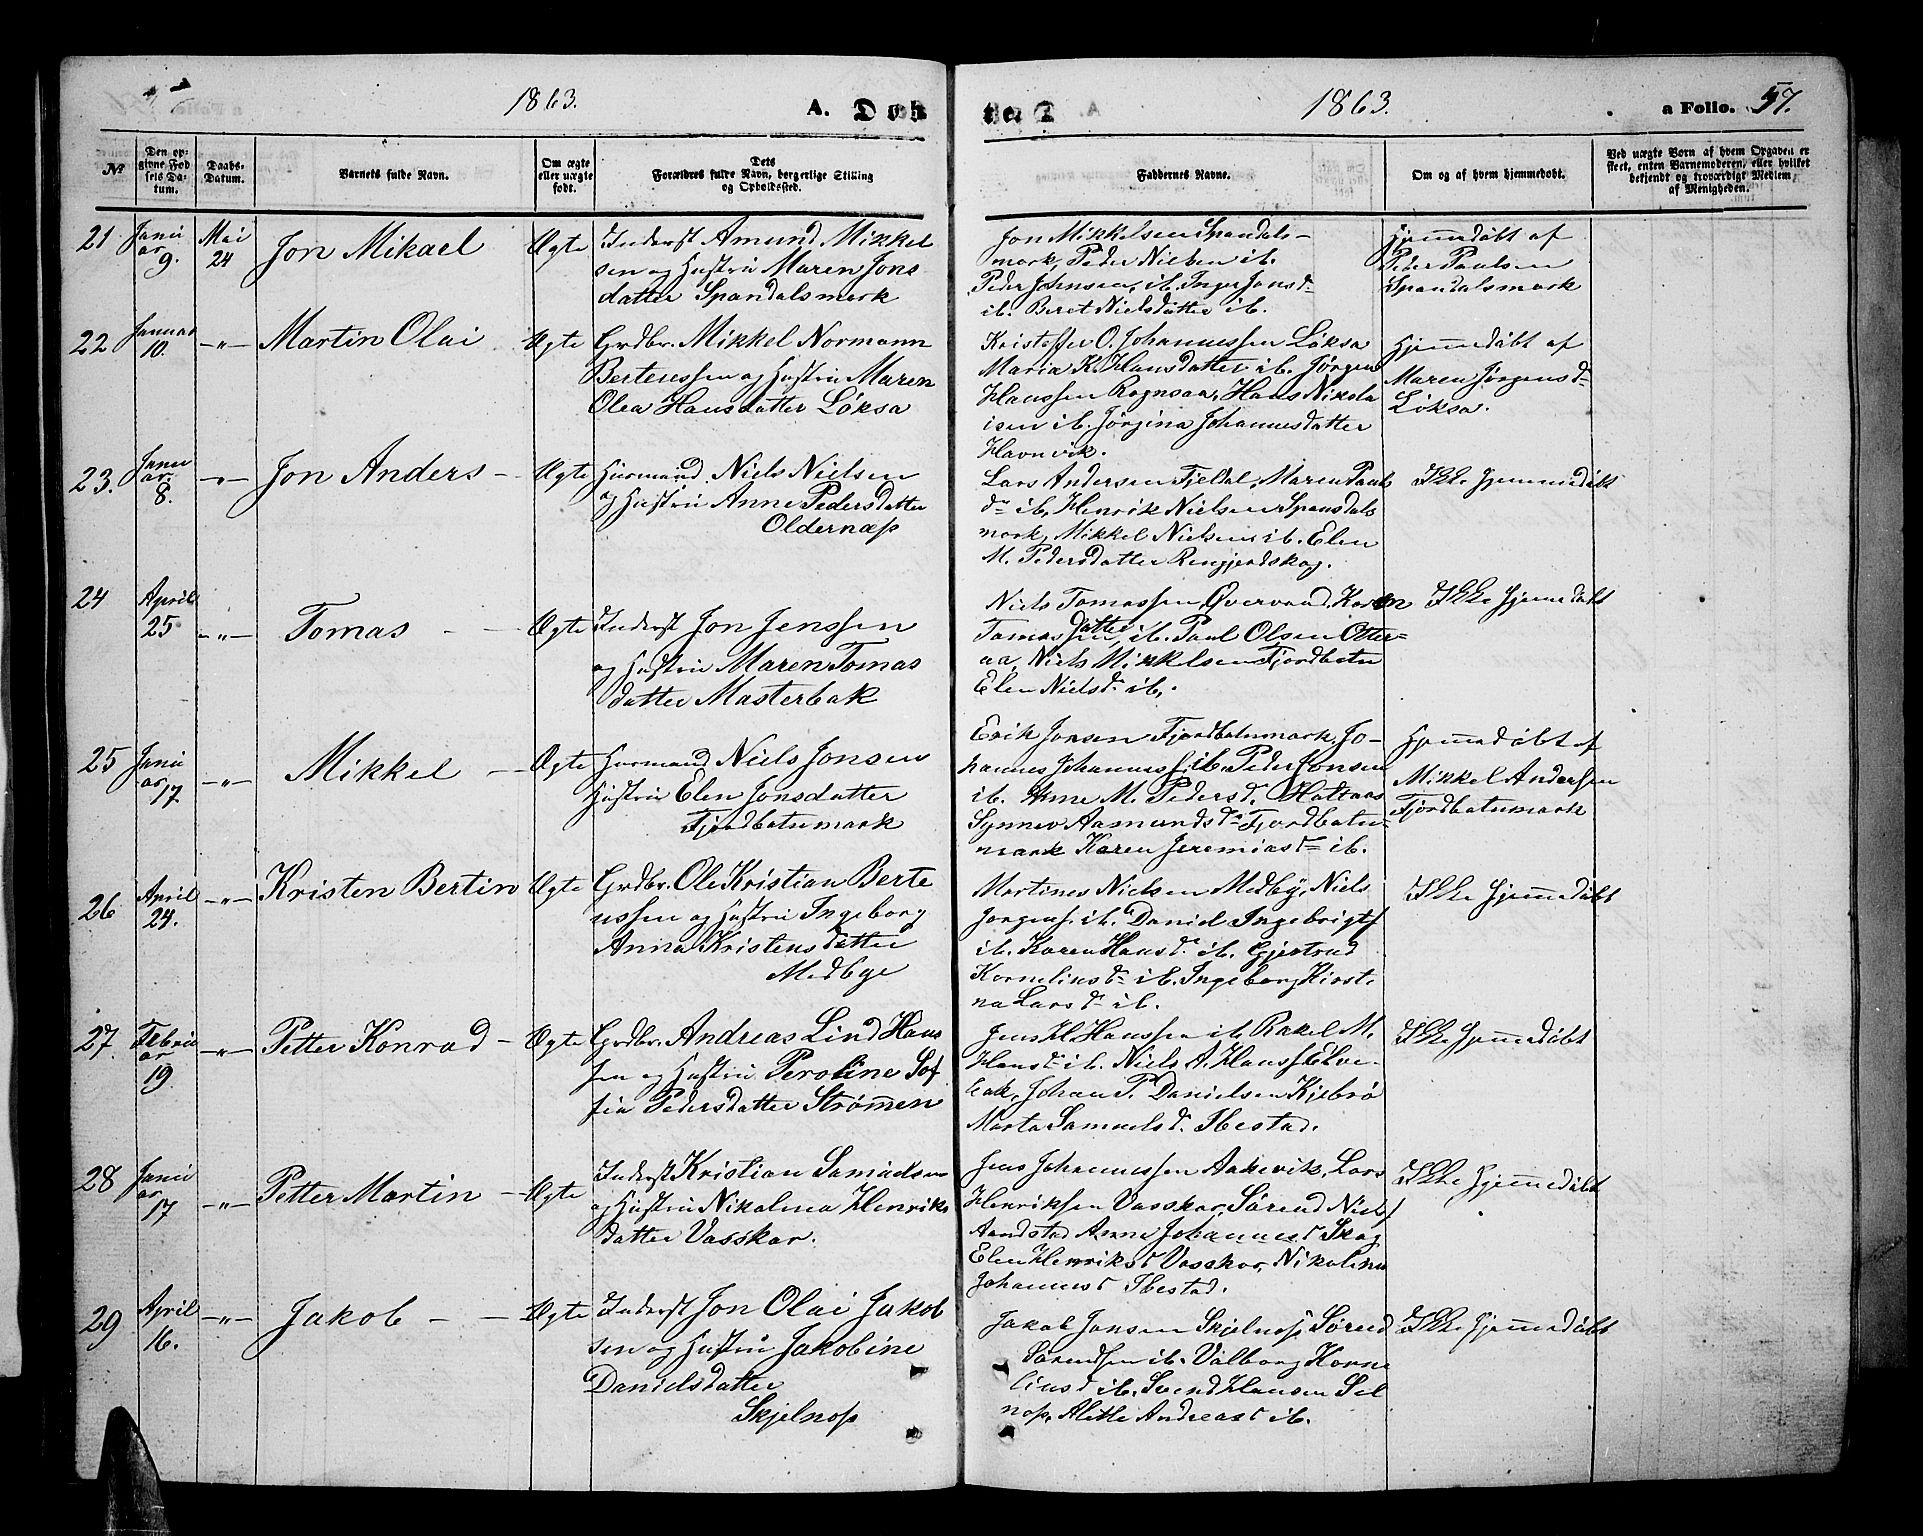 1863. A. Døb
1863. a Folio. 57.
№
Den opgivne Fødsels Datum.
Daabs-Datum.
Barnets fulde Navn.
Om ægte eller uægte født.
Dets Forældres fulde Navn, borgerlige Stilling og Opholdssted.
Faddernes Navne.
Om og af hvem hjemmedøbt.
Ved uægte Børn af hvem Opgaven er skeet, enten Barnemoderen, eller hvilket bekjendt og troværdigt Medlem af Menigheden.
21
Janu
ar
9.
Mai
24
Jon Mikael
Ægte
Inderst Amund Mikkel
sen og Hustru Maren Jons
datter Spandalsmark
Jon Mikkelsen Spandals-
mark, Peder Nielsen ib.
Peder Johnsen, ib. Inger Jonsd-
ib. Beret Nielsdatter ib.
Hjemmedøbt af
Peder Paulsen
Spandalsmark
22
Januar
10.
-"-
Martin Olai
Ægte
Grdbr. Mikkel Normann
Berteussen og Hustru Maren
Olea Hansdatter Løksa
Kristoffer O. Johannessen Løksa
Maria K. Hansdatter ib. Jørgen
Hanssen Rognsaa, Hans Nikola
isen ib. Jørgina Johannesdatter
Havnvik.
Hjemmedøbt af
Maren Jørgensd-
Løksa.
23.
Janu
ar
8.
-"-
Jon Anders -
Ægte
Huusmand Niels Nielsen
og Hustru Anne Pedersdatter
Oldernæss
Lars Andersen Fjeldal, Maren Pauls
d- ib, Henrik Nielsen Spansdals
mark, Mikkel Nielsen ib. Elen
M. Pedersdatter Rengjerdskog.
Ikke hjemmedøbt
24
April
25
-"-
Tomas - -
Ægte
Inderst Jon Jenssen
og Hustru Maren Tomas
datter Masterbak
Niels Tomassen Øvervand, Karen
Tomas datter ib. Paul Olsen Otter-
aa, Niels Mikkelsen Fjordbotn
Elen Nielsd. ib.
Ikke hjemmedøbt
25
Janu
ar
17
-"-
Mikkel -
Ægte
Huusmand Niels Jonsen
Hustru Elen Jonsdatter
Fjordbotnmark
Erik Jonsen Fjordbotnmark, Jo-
hannes Johanness ib. Peder Jonsen
ib. Anne M. Pedersd. Holtaas
Synnev Aamundsd- Fjordbotn-
mark Karen Jeremiasd- ib.
Hjemmedøbt af
Mikkel Andersen
Fjordbotnmark
26
April
24.
-"-
Kristen Bertin
Ægte
Grdbr. Ole Kristian Berte
ussen og Hustru Ingeborg
Anna Kristensdatter
Medbye
Martines Nielsen Medby, Niels
Jørgens. ib. Daniel Ingebrigts
ib. Karen Hansd. ib. Gjertrud
Korneliusd- ib. Ingeborg Kirsti
na Larsd- ib.
Ikke hjemmedøbt
27.
Febru
ar
19.
-"-
Petter Konrad -
Ægte
Grdbr. Andreas Lind Hans
sen og Hustru Peroline Sof
fia Pedersdatter Strømmen
Jens H. Hanssen ib. Rakel M.
Hansd- ib. Niels A. Hanss Elve-
bak, Johan P. Danielsen Kjebrø
Marta Samuelsd. Ibestad.
Ikke hjemmedøbt
28
Janu
ar
17
-"-
Petter Martin -
Ægte
Inderst Kristian Samuelsen
og Hustru Nikolina Henriks
datter Vasskar.
Jens Johannessen Aakevik, Lars
Henriksen Vasskar, Sørend Niels
Aandstad Anne Johannesd Skog
Elen Henriksd Vasskar, Nikolina
Johannesd Ibestad.
Ikke hjemmedøbt
29
April
16.
-"-
Jakob - -
Ægte
Inderst Jon Olai Jakob
sen og Hustru Jakobine
Danielsdatter
Skjelnæss
Jakob Jonsen Skjelnæss, Sørend
Sørendsen ib. Valborg Korne
liusd ib. Svend Hansen Sel
næss, Alette Andreasd ib.
Ikke hjemmedøbt